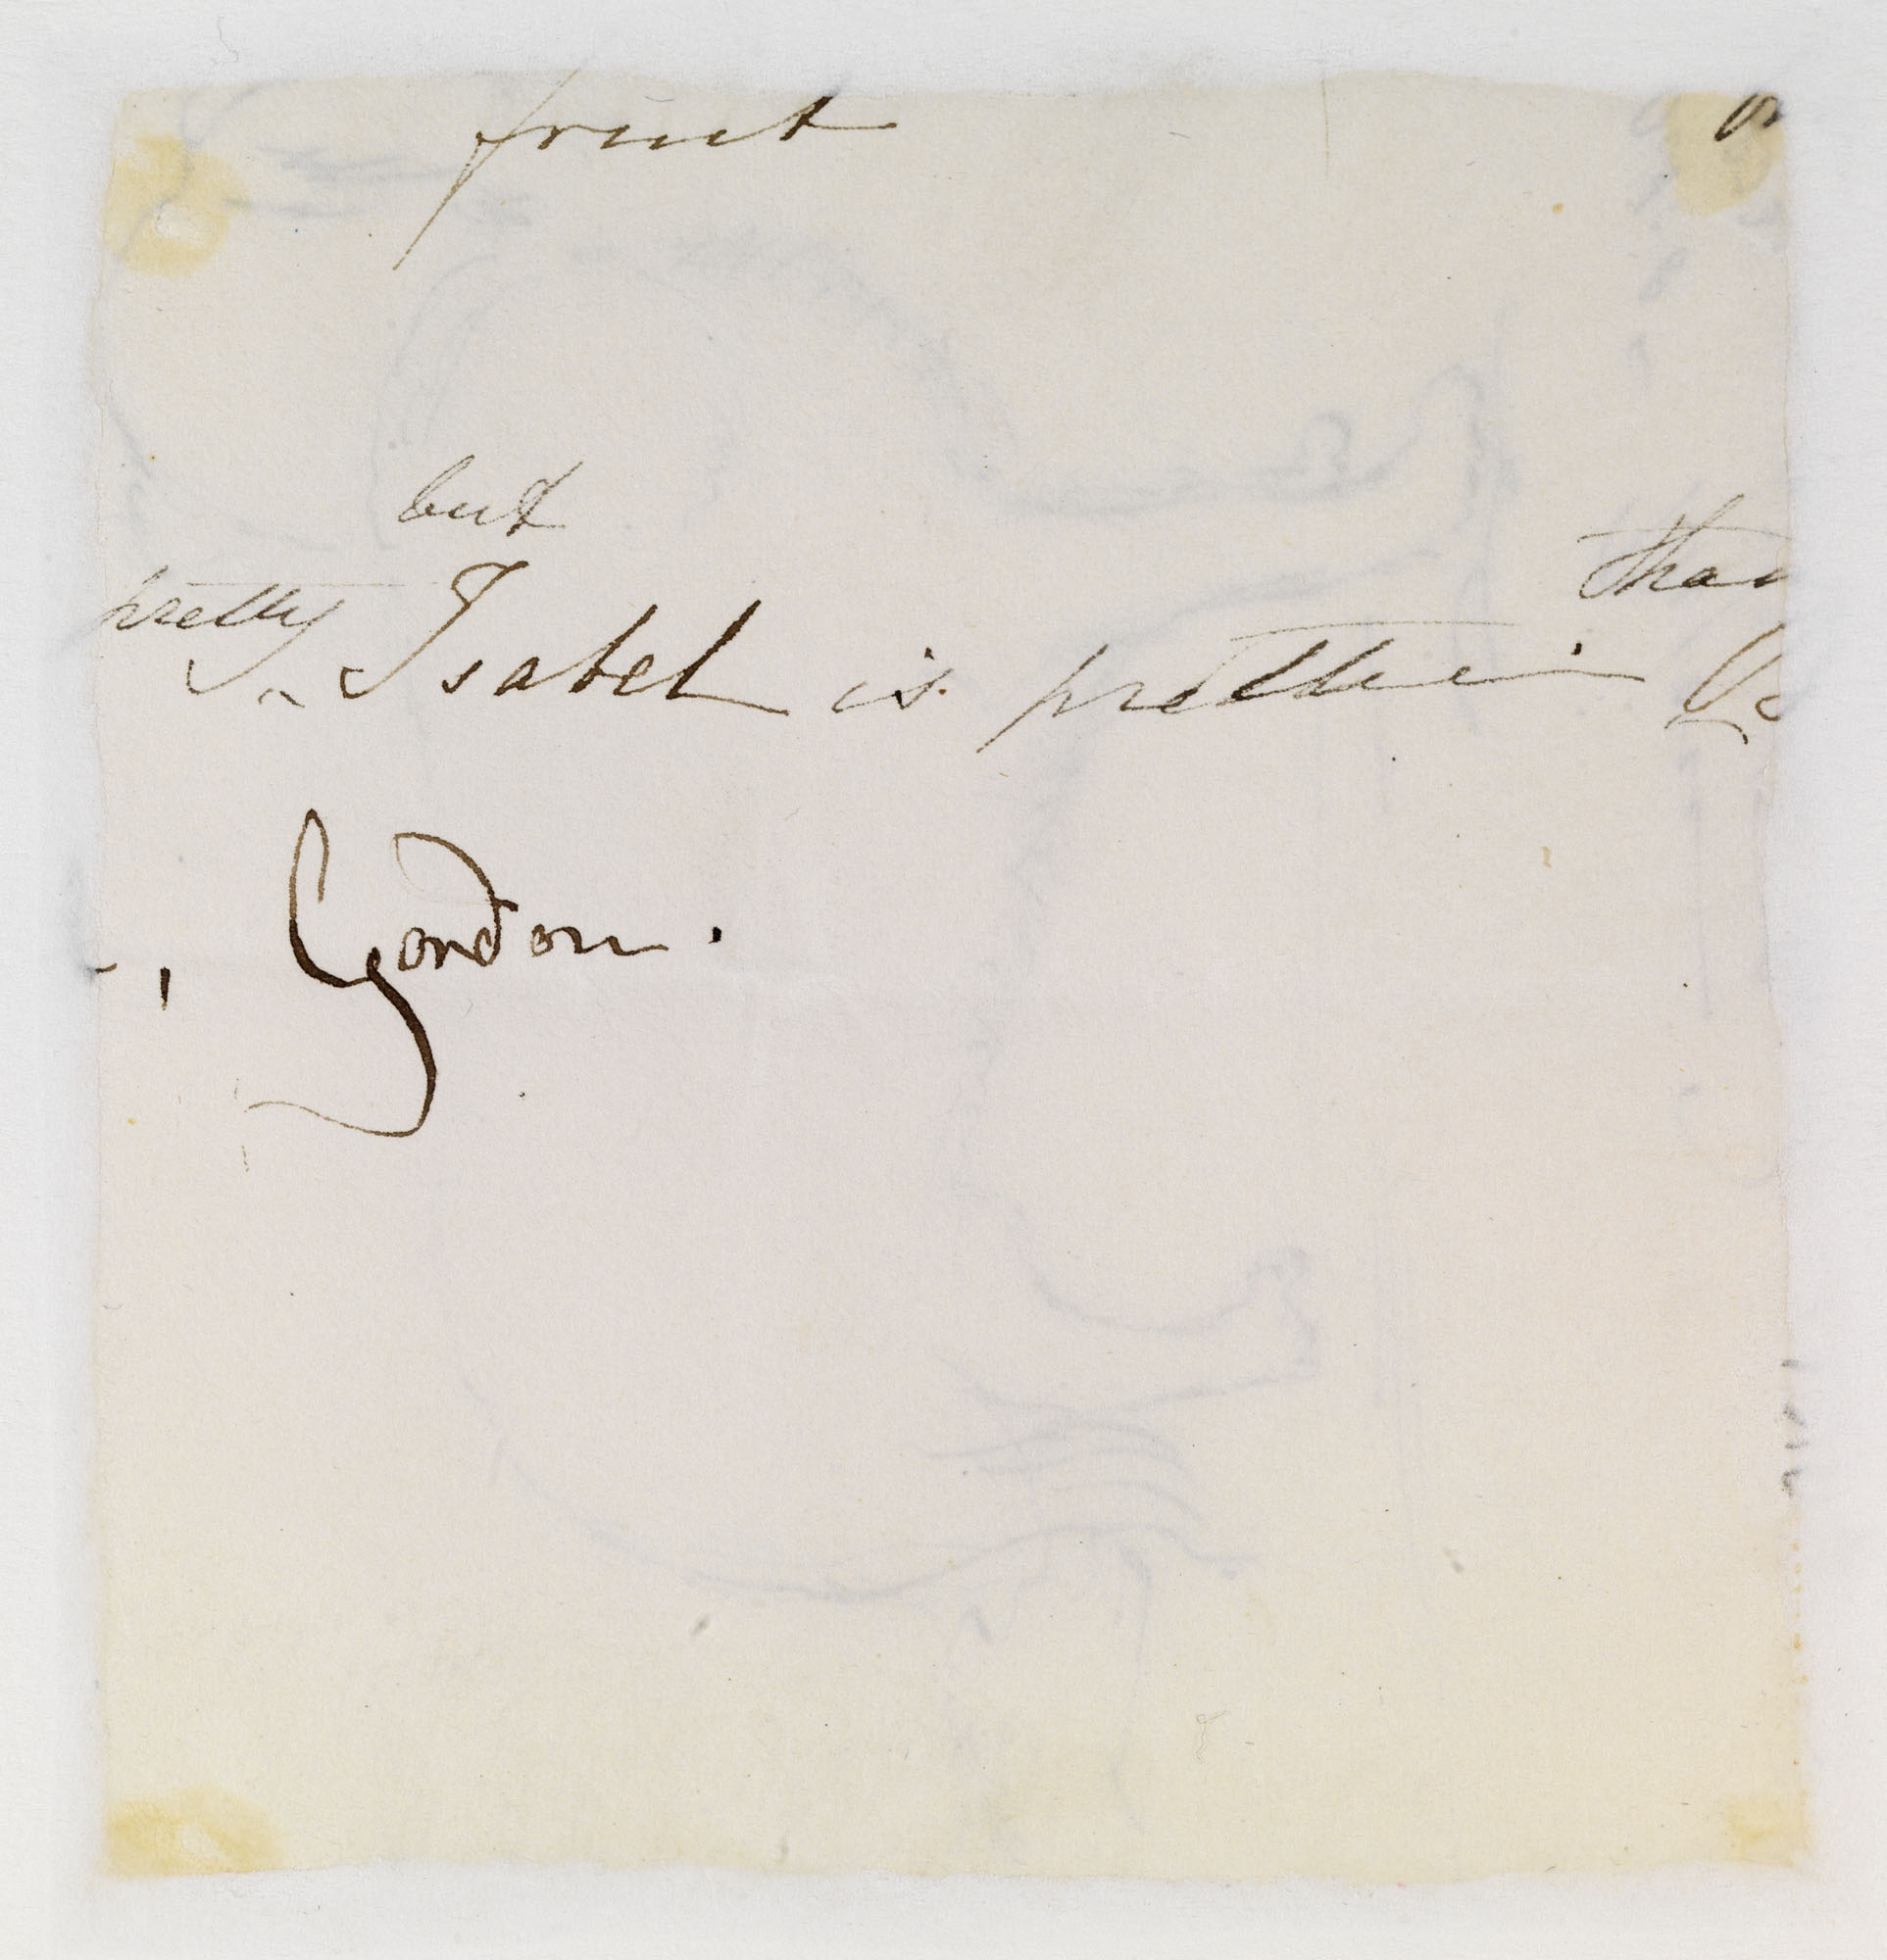 fruit
but
pretty Isabel is prettier than
Gordon.